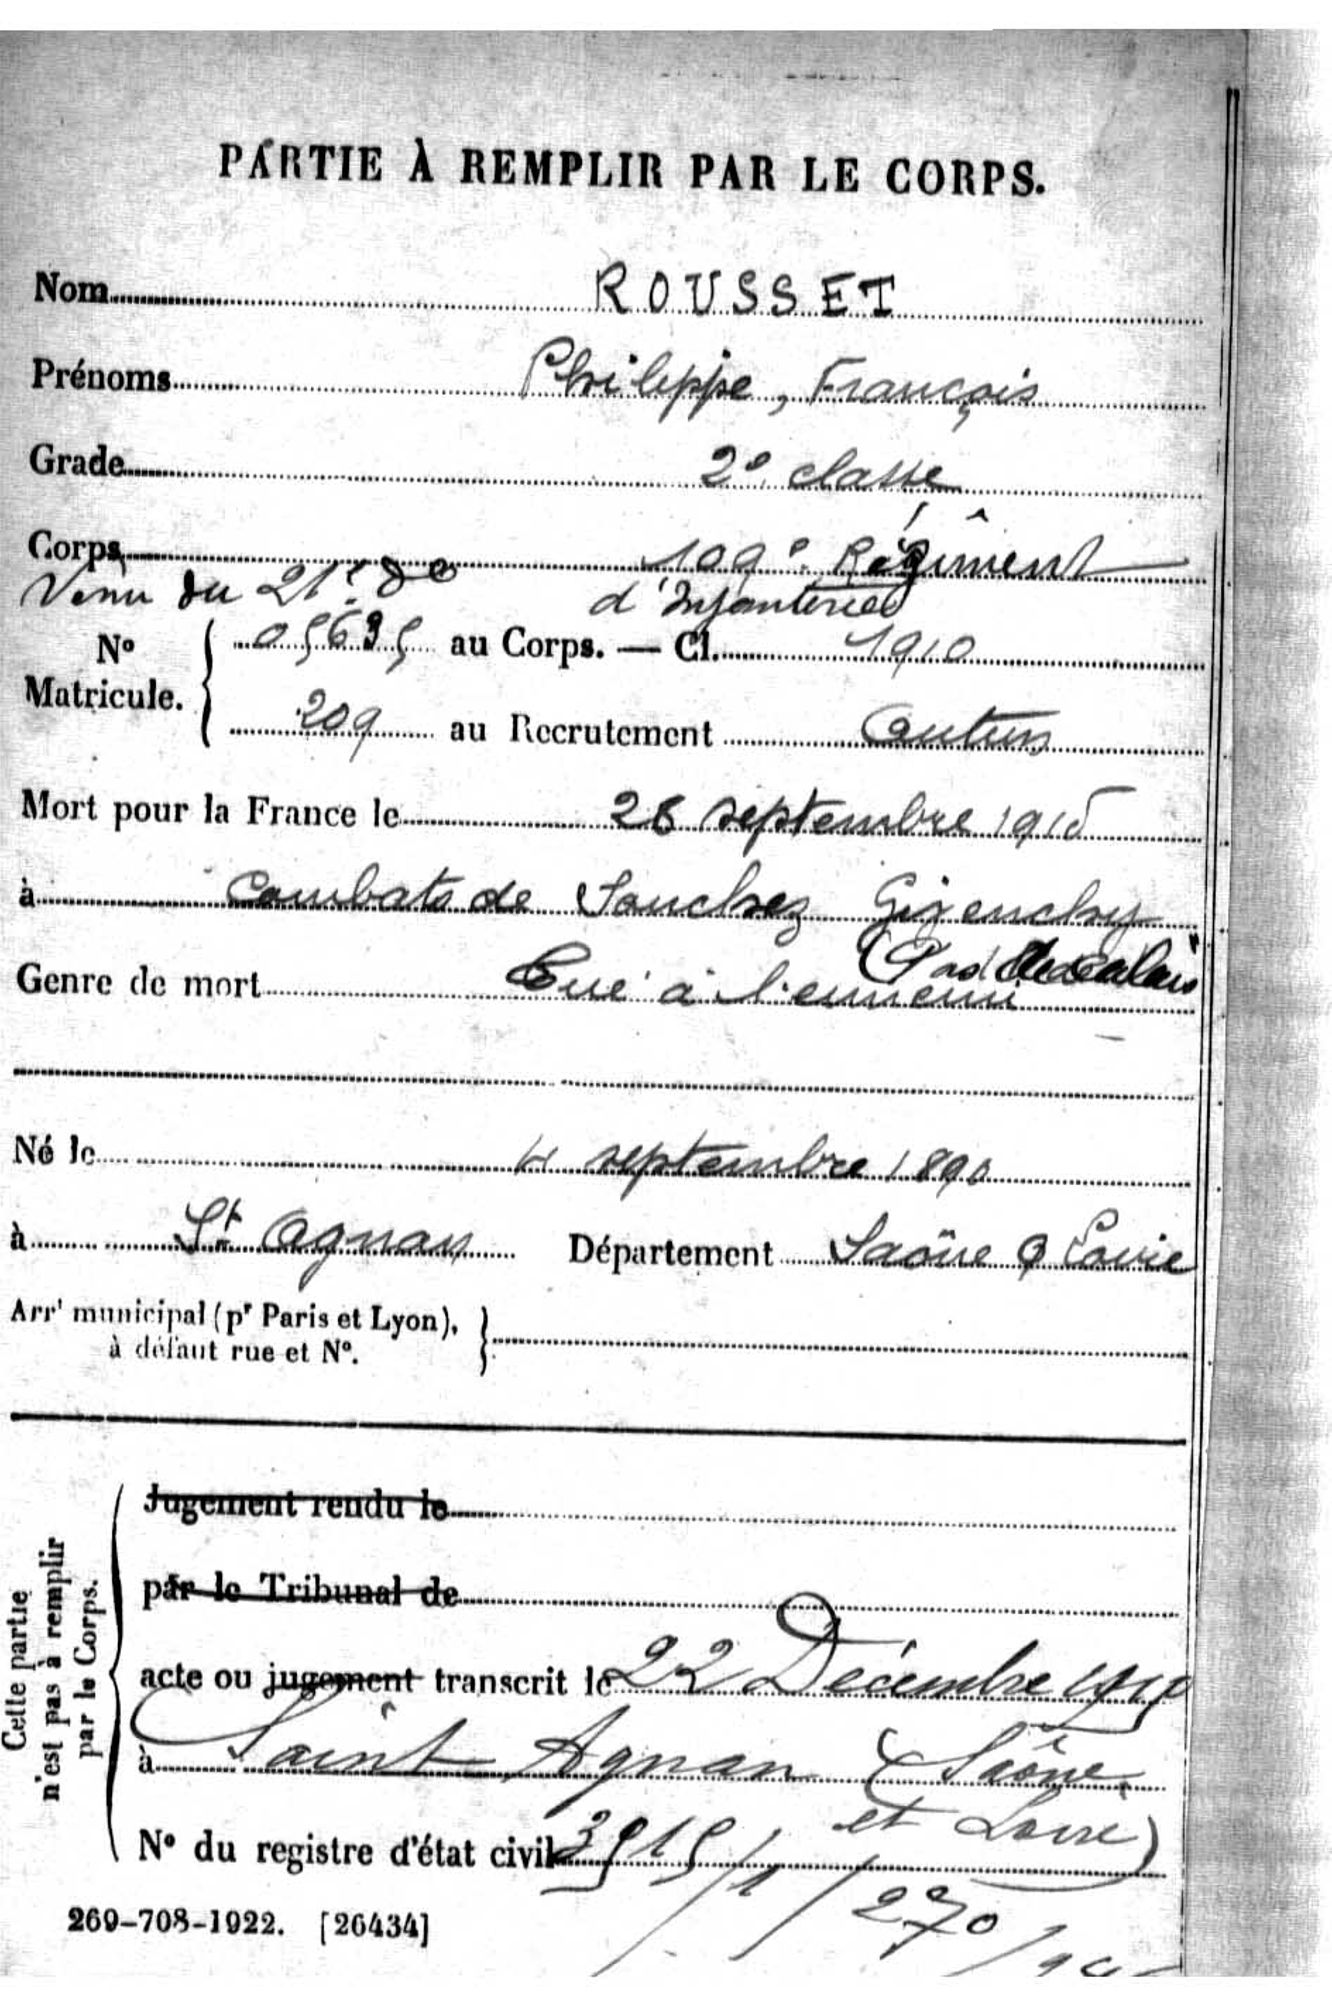 PARTIE À REMPLIR PAR LE CORPS.
Nom ROUSSET
Prénoms Philippe, François
Grade 2e classe
Corps 109e Régiment
Venu du 21e do d'Infanterie
No Matricule. 05635 au Corps. — Cl. 1910
209 au Recrutement Autun
Mort pour la France le 26 septembre 1915
à Combats de Souchez Givenchy
(Pas de Calais
Genre de mort Tué à l'ennemi
Né le 4 septembre 1890
à St Agnan Département Saône & Loire
Arrt municipal (pr Paris et Lyon),
à défaut rue et No.
Cette partie
n'est pas à remplir
par le Corps.
Jugement rendu le
par le Tribunal de
acte ou jugement transcrit le 22 Décembre
à Saint Agnan (Saône
et Loire)
No du registre d'état civil 3515/1/270/
269-708-1922. [26434]